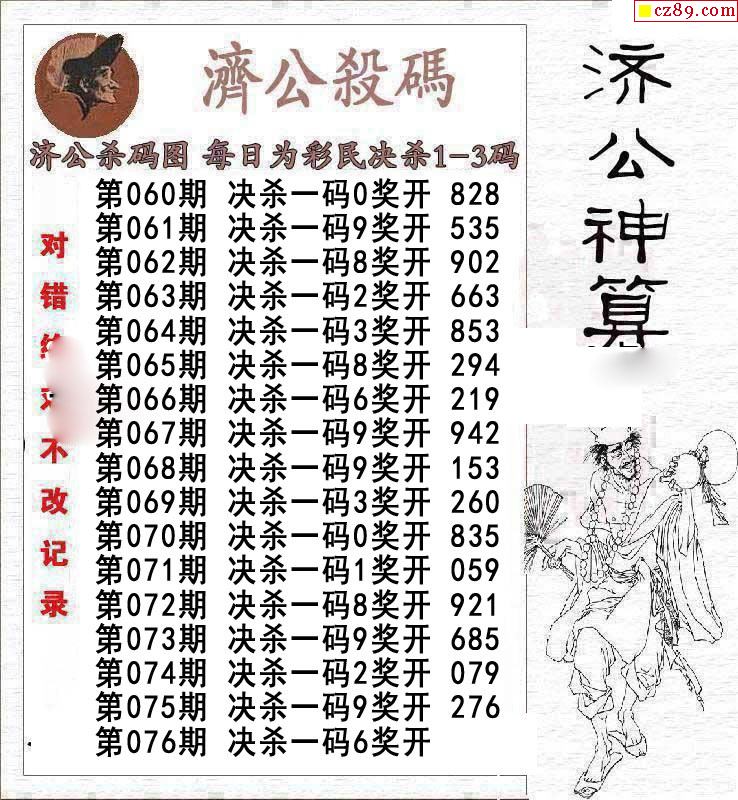 cz89.com
濟公殺碼
济公杀码图 每日为彩民决杀1-3码
第060期 决杀一码0奖开 828
第061期 决杀一码9奖开 535
第062期 决杀一码8奖开 902
第063期 决杀一码2奖开 663
第064期 决杀一码3奖开 853
第065期 决杀一码8奖开 294
第066期 决杀一码6奖开 219
第067期 决杀一码9奖开 942
第068期 决杀一码9奖开 153
第069期 决杀一码3奖开 260
第070期 决杀一码0奖开 835
第071期 决杀一码1奖开 059
第072期 决杀一码8奖开 921
第073期 决杀一码9奖开 685
第074期 决杀一码2奖开 079
第075期 决杀一码9奖开 276
第076期 决杀一码6奖开
对错不改记录
济公神算